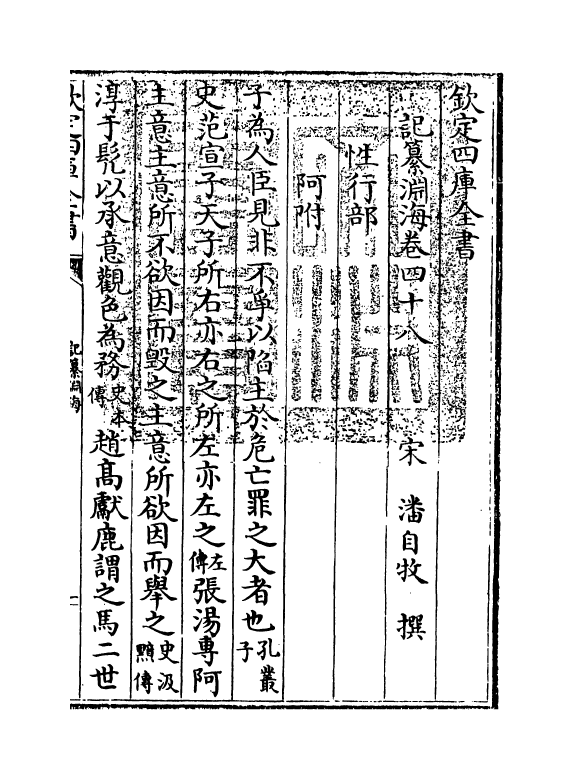 欽定四庫全書
記纂淵海卷四十八　宋　潘自牧　撰
性行部
阿附
子為人臣見非不爭以陷主於危亡罪之大者也孔叢子
史范宣子天子所右亦右之所左亦左之左傳張湯專阿
主意主意所不欲因而毀之主意所欲因而舉之史汲黯傳
淳于髠以承意觀色為務史本傳趙髙獻鹿謂之馬二世
欽定四庫全書
記纂淵海